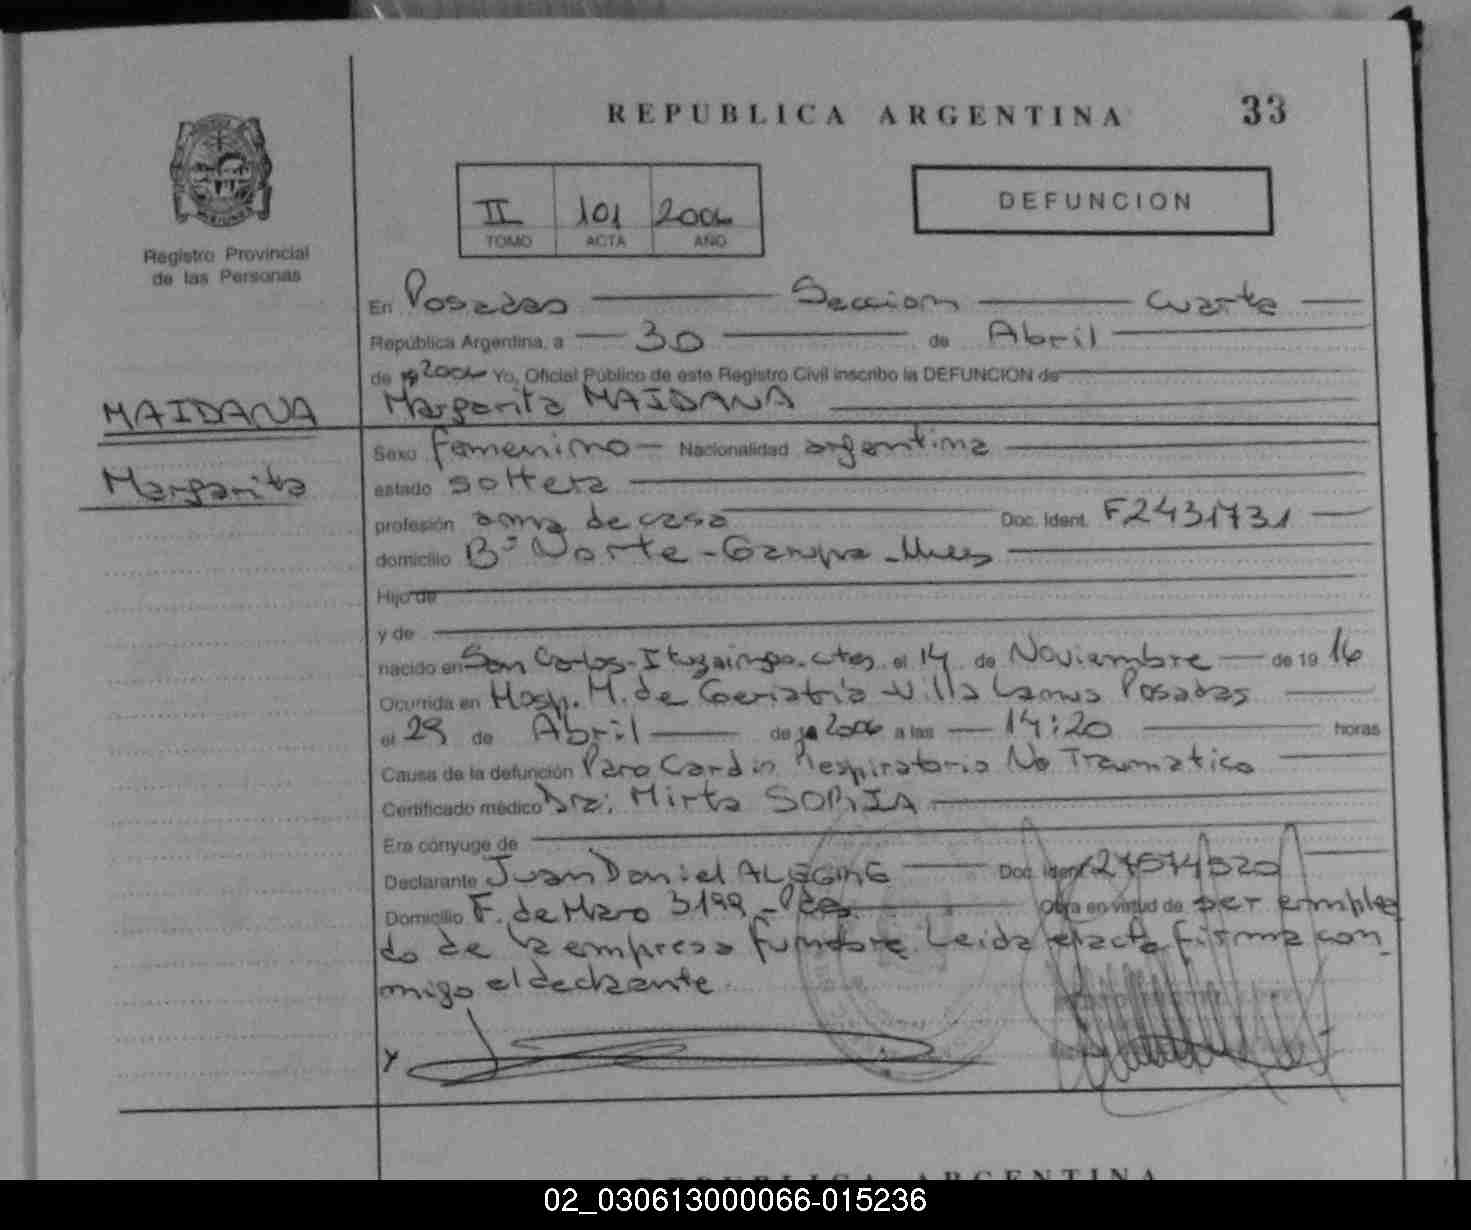 REPUBLICA ARGENTINA 33
II 101 2006
TOMO ACTA AÑO
DEFUNCION
Registro Provincial
de las Personas
En Posadas Seccion Cuarta
República Argentina, a 30 de Abril
de 19 2006 Yo, Oficial Público de este Registro Civil inscribo la DEFUNCION de
MAIDANA Margarita MAIDANA
Sexo femenino Nacionalidad argentina
Margarita
estado soltera
profesión ama de casa Doc. Ident. F2431731
domicilio Bº Norte - Garupa - Mnes
Hijo de
y de
nacido en San Carlos - Ituzaingo. ctes. el 14 de Noviembre de 19 16
Ocurrida en Hosp. M. de Geriatria - Villa Lanus Posadas
el 29 de Abril de 19 2006 a las 14:20 horas
Causa de la defunción Paro Cardio Respiratorio No Traumatico
Certificado médico Dra: Mirta SORIA
Era cónyuge de
Declarante Juan Daniel ALEGRE Doc. Ident 27574520
Domicilio F. de Haro 3199 - Pdas. Obra en virtud de ser emplea
do de la empresa funebre. Leida el acta firma con
migo el declarante.
REPUBLICA ARGENTINA
02_030613000066-015236